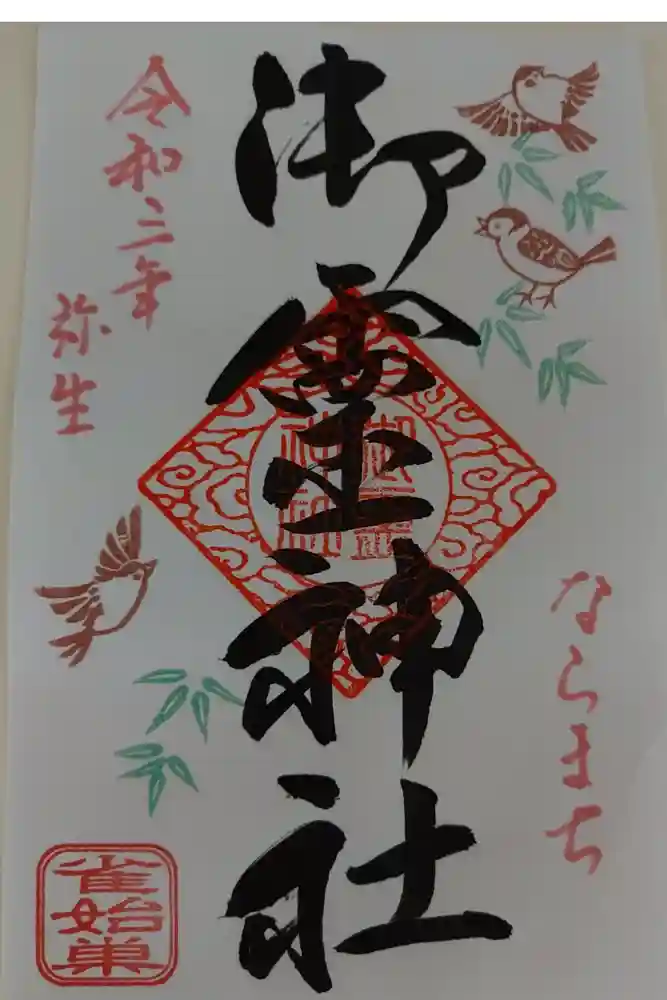 御霊神社
ならまち
令和三年
弥生
御霊
神社
雀始巣